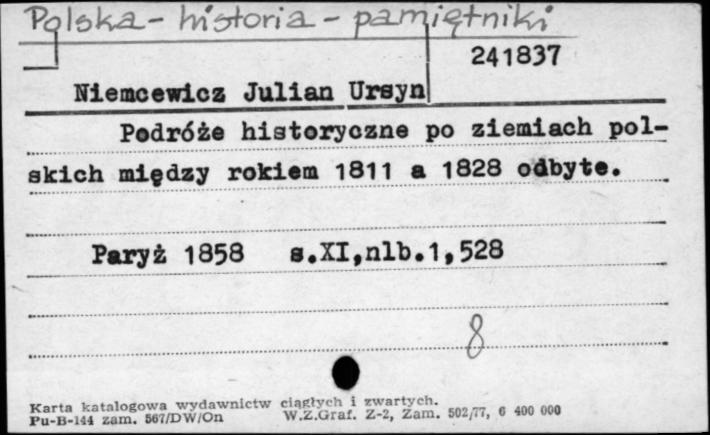 Polska - historia - pamiętniki
241837
Niemcewicz Julian Ursyn
Podróże historyczne po ziemiach pol-
skich między rokiem 1811 a 1828 odbyte.
Paryż 1858 s.XI,nlb.1,528
8
Karta katalogowa wydawnictw ciągłych i zwartych.
Pu-B-144 zam. 567/DW/On W.Z.Graf. Z-2, Zam. 502/77, 6 400 000